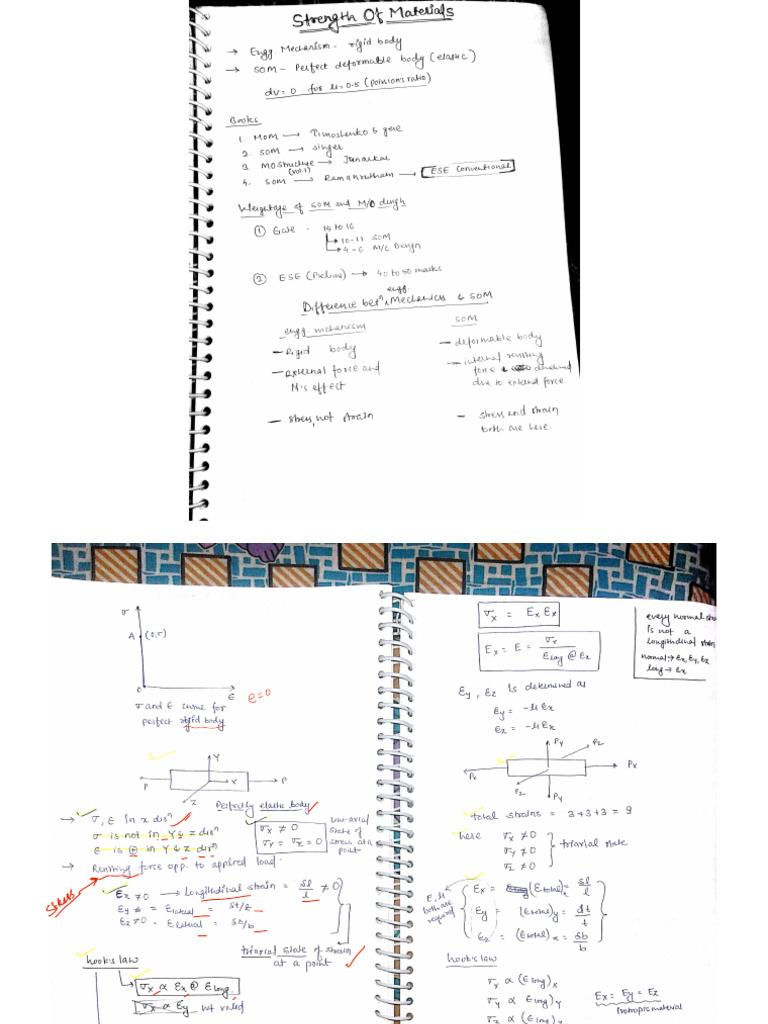 Strength Of Materials
→ Engg Mechanism - rigid body
→ SOM - Perfect deformable body (elastic)
dv = 0 for μ = 0.5 (Poission's ratio)
Books
1. MOM → Timoshenko & gere
2. SOM → singer
3. MO Structure → Junarkar
(vol.1)
4. SOM → Ramamrutham → ESE Conventional
Weightage of SOM and M/D design
① Gate -
→ 10-11 SOM
→ 4-6 M/C Design
② ESE (Prelims) → 40 to 50 marks
Difference betⁿ engg. Mechanics & SOM
engg mechanism
- Rigid body
- External force and
M's effect
- stress, not strain
SOM
- deformable body
- internal resisting
force developed
due to external force
- stress and strain
both are here.
σ
A (0,σ)
O
ε
e = 0
σ and ε curve for
perfect rigid body
Y
P
X
P
Z
Perfectly elastic body
→ σ, ε in x dirⁿ
σ is not in Y & z dirⁿ
ε is in Y & z dirⁿ
σx ≠ 0
σy = σz = 0
Uni-axial
state of
stress at a
point
→ Resisting force opp. to applied load.
stress
εx ≠ 0 → Longitudinal strain = δl/l ≠ 0
εy ≠ = εlateral = δt/t
εz ≠ 0 = εlateral = δb/b
triaxial state of strain
at a point
hook's law
σx ∝ εx @ εlong
σx ∝ εy not valid
σx = Ex εx
Ex = E = σx / εlong @ εx
every normal
is not a
longitudinal strain
normal → εx, εy, εz
long → εx
εy, εz is determined as
εy = -μεx
εz = -μεx
Py
Pz
Px
Px
Pz
Py
total strains = 3+3+3 = 9
here σx ≠ 0
σy ≠ 0
σz ≠ 0
triaxial state
both are
required
εx = (εtotal)x = δl/l
εy = (εtotal)y = δt/t
εz = (εtotal)x = δb/b
hook's law
σx ∝ (εlong)x
σy ∝ (εlong)y
σz ∝ (εlong)
Ex = Ey = Ez
Isotropic material